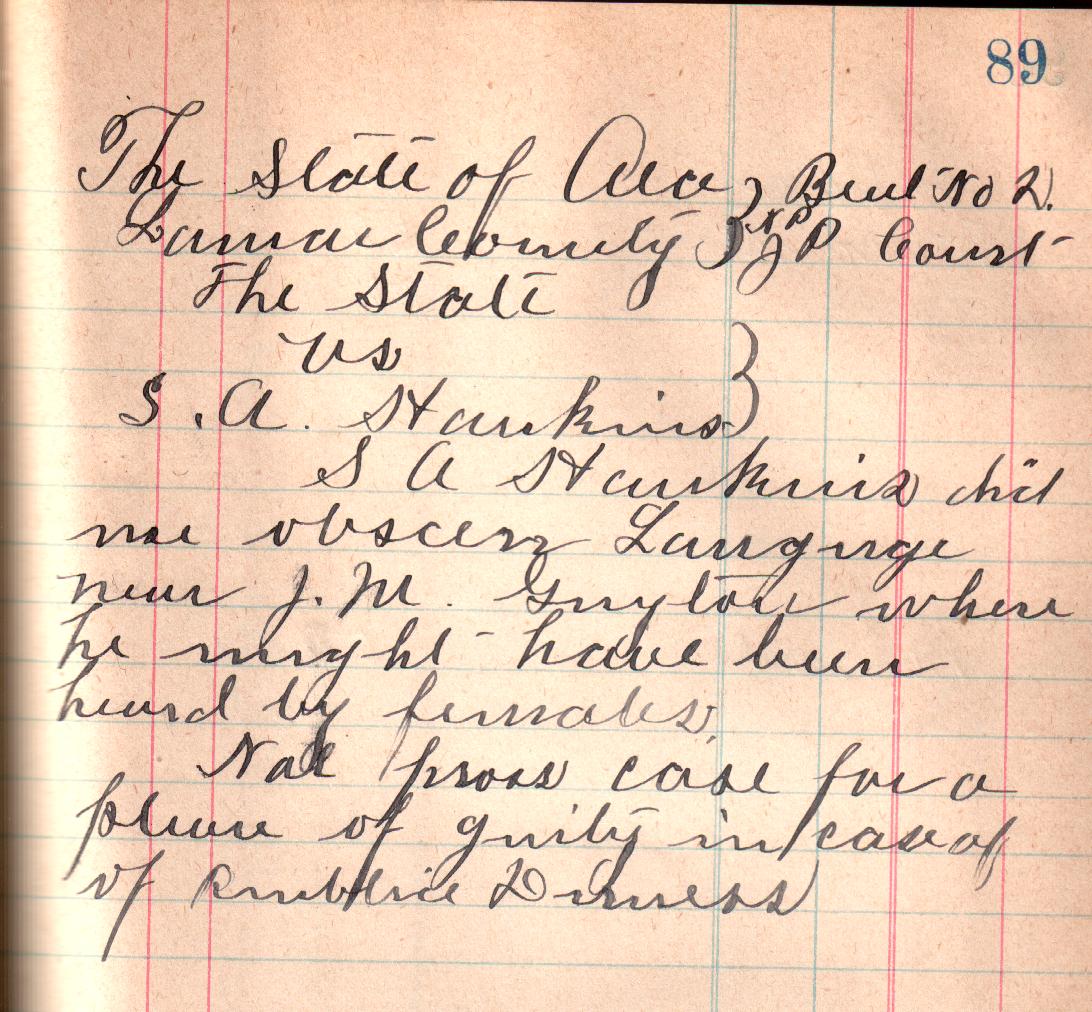 89
The State of Ala } Beat No 2.
Lamar County } N P J P Court
The State
vs
S. A. Hankins }
S A Hankins did
use obscen Languge
near J. M. Guyton where
he might have been
heard by females.
Nal pross case for a
pleae of guilty in case of
of Publice